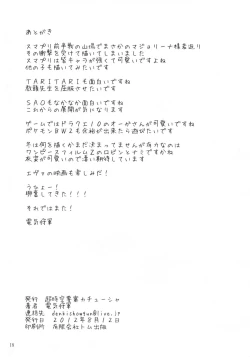 あとがき
スマプリ前半戦の山場でまさかのマジョリーナ様若返り
その衝撃を受けて描いてしまいました
スマプリは皆キャラが強くて可愛いですよね
他の子も描いてみたいです
TARITARIも面白いですね
教頭先生を屈服させたいです
SAOもなかなか面白いですね
これからの展開が楽しみです
ゲームではドラクエ10のオーガさんが可愛いですね
ポケモンBW2も余裕が出来たら遊びたいです
冬は何を描くかまだ決まってませんが有力なのは
ワンピースフィルムZのロビンとナミですかね
衣装が可愛いので凄い期待しています
エヴァの映画も楽しみだ!
うひょー!
興奮してきた!!!
それではまた!
電気将軍
発行 超時空要塞カチューシャ
著者 電気将軍
連絡先 denkishowgun@live.jp
発行日 2012年8月12日
印刷所 有限会社トム出版